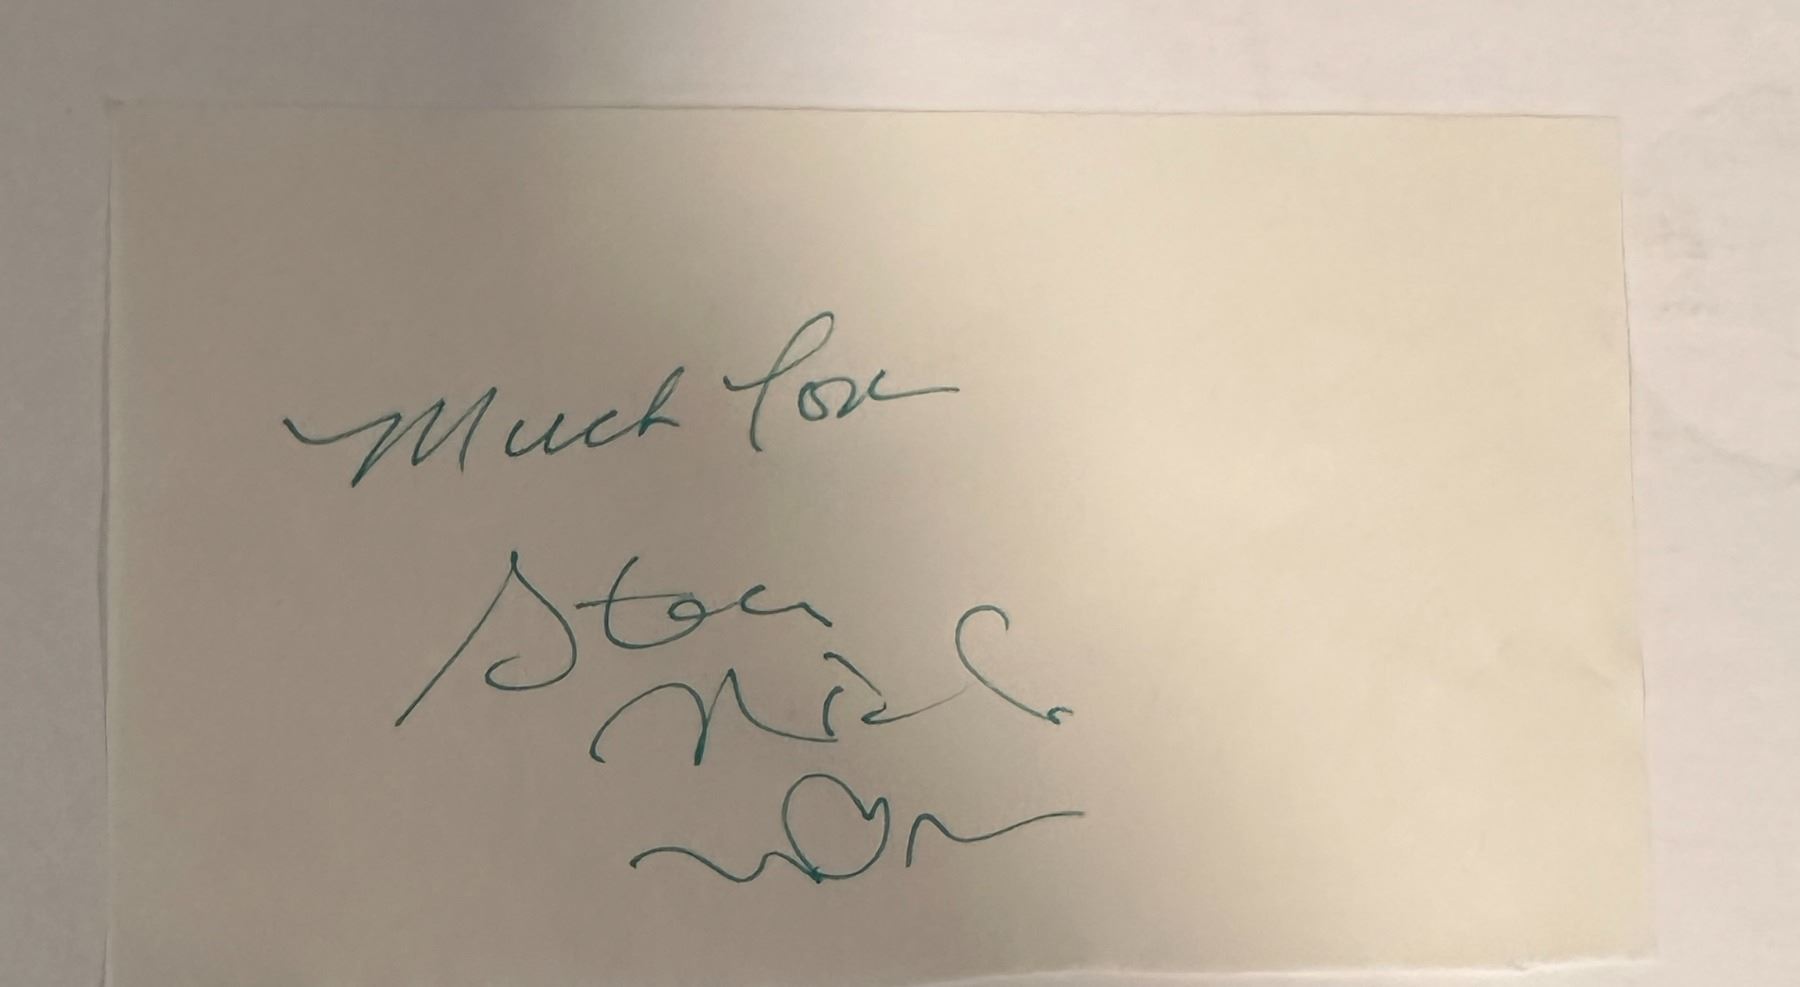 Much love
Stevie
Nicks